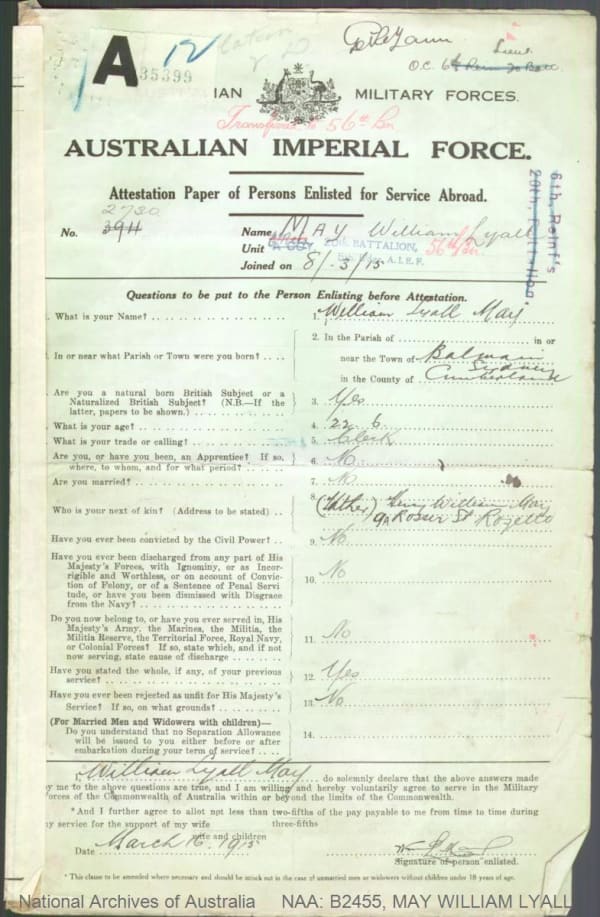 A
35399
Lieut
O.C. 6th
IAN MILITARY FORCES.
Transferred to 56th Bn
AUSTRALIAN IMPERIAL FORCE.
Attestation Paper of Persons Enlisted for Service Abroad.
2730
No. 394 Name MAY William Lyall
Unit 20th BATTALION, 56th Bn.
A.I.F.
Joined on 8/-3/15
6th, Reinf's
Questions to be put to the Person Enlisting before Attestation.
1. What is your Name? 1. William Lyall May
2. In the Parish of in or
2. In or near what Parish or Town were you born? near the Town of Balmain
Sydney
in the County of Cumberland
Are you a natural born British Subject or a
Naturalized British Subject? (N.B.—If the
latter, papers to be shown.) 3. Yes
What is your age? 4. 22 6
What is your trade or calling? 5. Clerk
Are you, or have you been, an Apprentice? If so,
where, to whom, and for what period? 6. No
Are you married? 7. No
Who is your next of kin? (Address to be stated) 8. (Father) Henry William May
Rosser St Rozelle
Have you ever been convicted by the Civil Power? 9. No
Have you ever been discharged from any part of His
Majesty's Forces, with Ignominy, or as Incor-
rigible and Worthless, or on account of Convic-
tion of Felony, or of a Sentence of Penal Servi
tude, or have you been dismissed with Disgrace
from the Navy? 10. No
Do you now belong to, or have you ever served in, His
Majesty's Army, the Marines, the Militia, the
Militia Reserve, the Territorial Force, Royal Navy,
or Colonial Forces? If so, state which, and if not
now serving, state cause of discharge 11. No
Have you stated the whole, if any, of your previous
service? 12. Yes
Have you ever been rejected as unfit for His Majesty's
Service? If so, on what grounds? 13. No
(For Married Men and Widowers with children)—
Do you understand that no Separation Allowance
will be issued to you either before or after
embarkation during your term of service? 14.
William Lyall May do solemnly declare that the above answers made
by me to the above questions are true, and I am willing and hereby voluntarily agree to serve in the Military
Forces of the Commonwealth of Australia within or beyond the limits of the Commonwealth.
*And I further agree to allot not less than two-fifths of the pay payable to me from time to time during
three-fifths
my service for the support of my wife
wife and children
Date March 16. 1915
Signature of person enlisted.
* This clause to be amended where necessary and should be struck out in the case of unmarried men or widowers without children under 18 years of age.
National Archives of Australia NAA: B2455, MAY WILLIAM LYALL